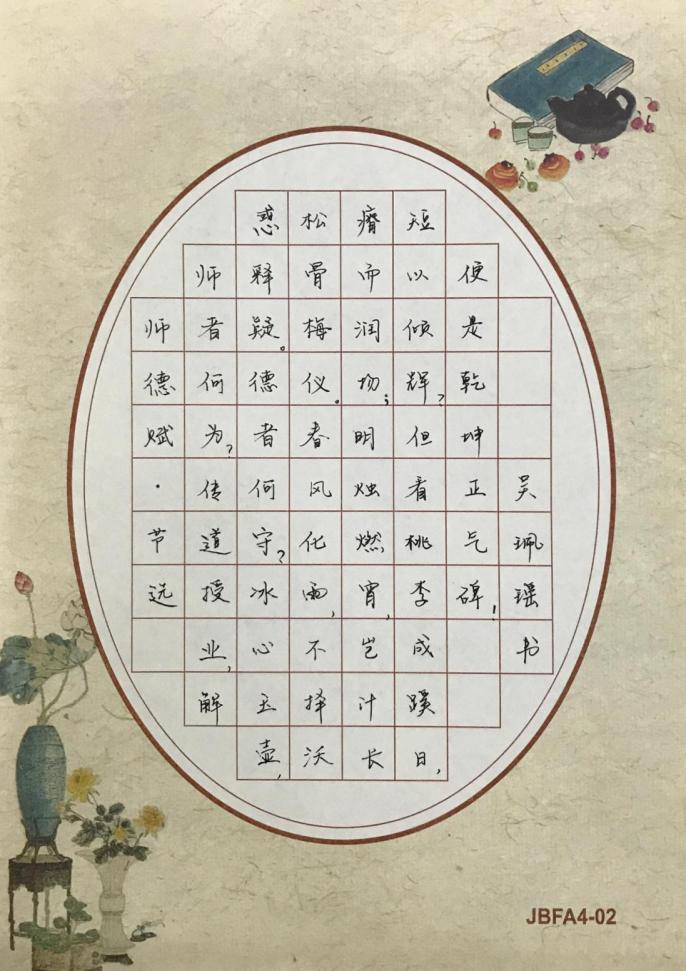 师德赋·节选
师者何为?传道授业,解
惑释疑。德者何守?冰心玉壶,
松骨梅仪。春风化雨,不择沃
瘠而润物;明烛燃宵,岂计长
短以倾辉?但看桃李成蹊日,
便是乾坤正气碑!
吴珮瑶书
JBFA4-02